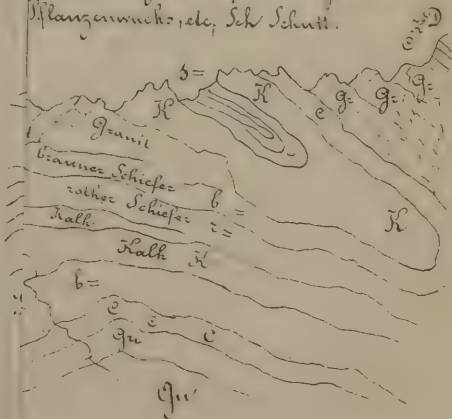 Pflanzenwuchs, etc, Sch Schutt.
e D
s=
K K e G= G= G=
Granit
brauner Schiefer
b=
rother Schiefer r=
Kalk
K
Kalk K
b=
e e e
Qu
Qu